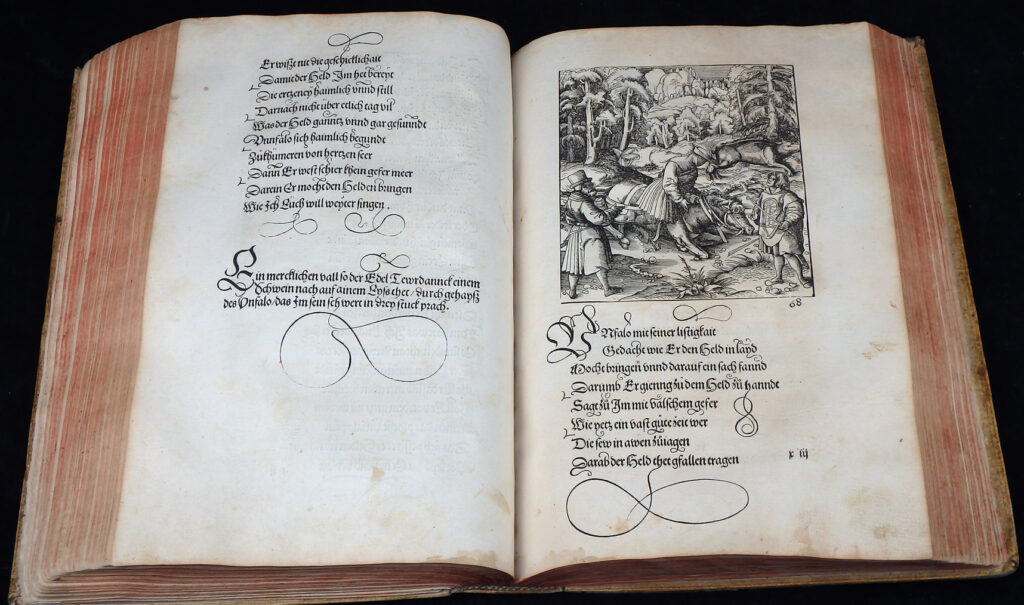 Er wißt nit die geschicklichait
Damit der Held Im het bereyt
Die ertzeney haimlich vnnd still
Darnach nicht über etlich tag vil
Was der Held ganntz vnnd gar gesunndt
Vnnfalo sich haimlich begundt
Zükhümeren von hertzen seer
Dann Er west schier khein gefer meer
Darein Er mocht den Helden bringen
Wie Ich Euch will weyter singen.
Ein mercklichen vall so der Edel Tewrdannck einem
Schwein nach auf ainem Eyss thet / durch gehayß
des Vnfalo / das Im sein schwert in drey stuck prach.
68
VNfalo mit seiner listigkait
Gedacht wie Er den Held in layd
Mocht bringen vnnd darauf ein sach fannd
Darumb Er gienng zü dem Held zü hanndt
Sagt zü Im mit valschem gefer
Wie yetz ein vast güte zeit wer
Die sew in awen züiagen
Darab der Held thet gfallen tragen
x iij